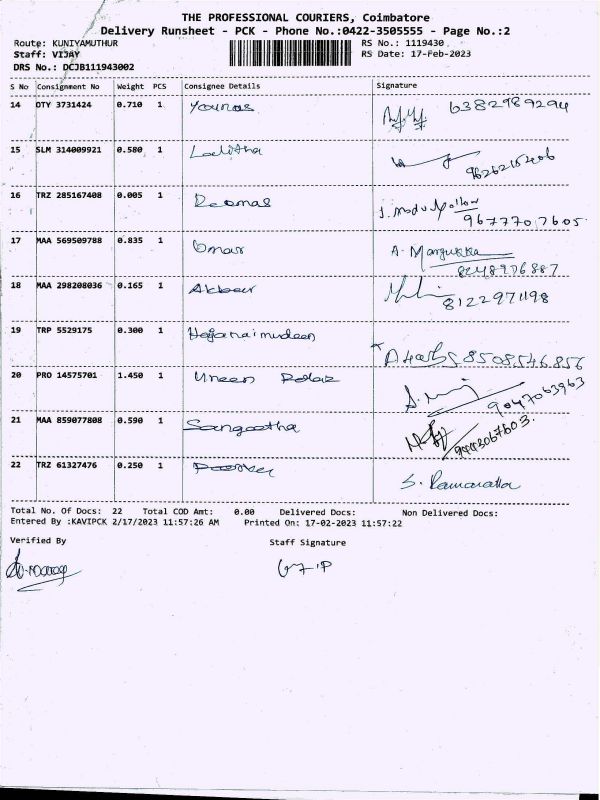 THE PROFESSIONAL COURIERS, Coimbatore
Delivery Runsheet - PCK - Phone No.:0422-3505555 - Page No.:2
Route: KUNIYAMUTHUR RS No.: 1119430
Staff: VIJAY RS Date: 17-Feb-2023
DRS No.: DCJB111943002
S No Consignment No Weight PCS Consignee Details Signature
14 OTY 3731424 0.710 1 Younas 6382989294
15 SLM 314009921 0.580 1 Lalitha 9626215406
16 TRZ 285167408 0.005 1
9677707605
17 MAA 569509788 0.835 1 Umar A. Margukka
8248976887
18 MAA 298208036 0.165 1 Akbear
8122971198
19 TRP 5529175 0.300 1 Hajanaimudeen
8508546856
20 PRO 14575701 1.450 1 Uneen
9047063963
21 MAA 859077808 0.590 1 Sangeetha
9443067603.
22 TRZ 61327476 0.250 1 S. Ramanatha
Total No. Of Docs: 22 Total COD Amt: 0.00 Delivered Docs: Non Delivered Docs:
Entered By :KAVIPCK 2/17/2023 11:57:26 AM Printed On: 17-02-2023 11:57:22
Verified By Staff Signature